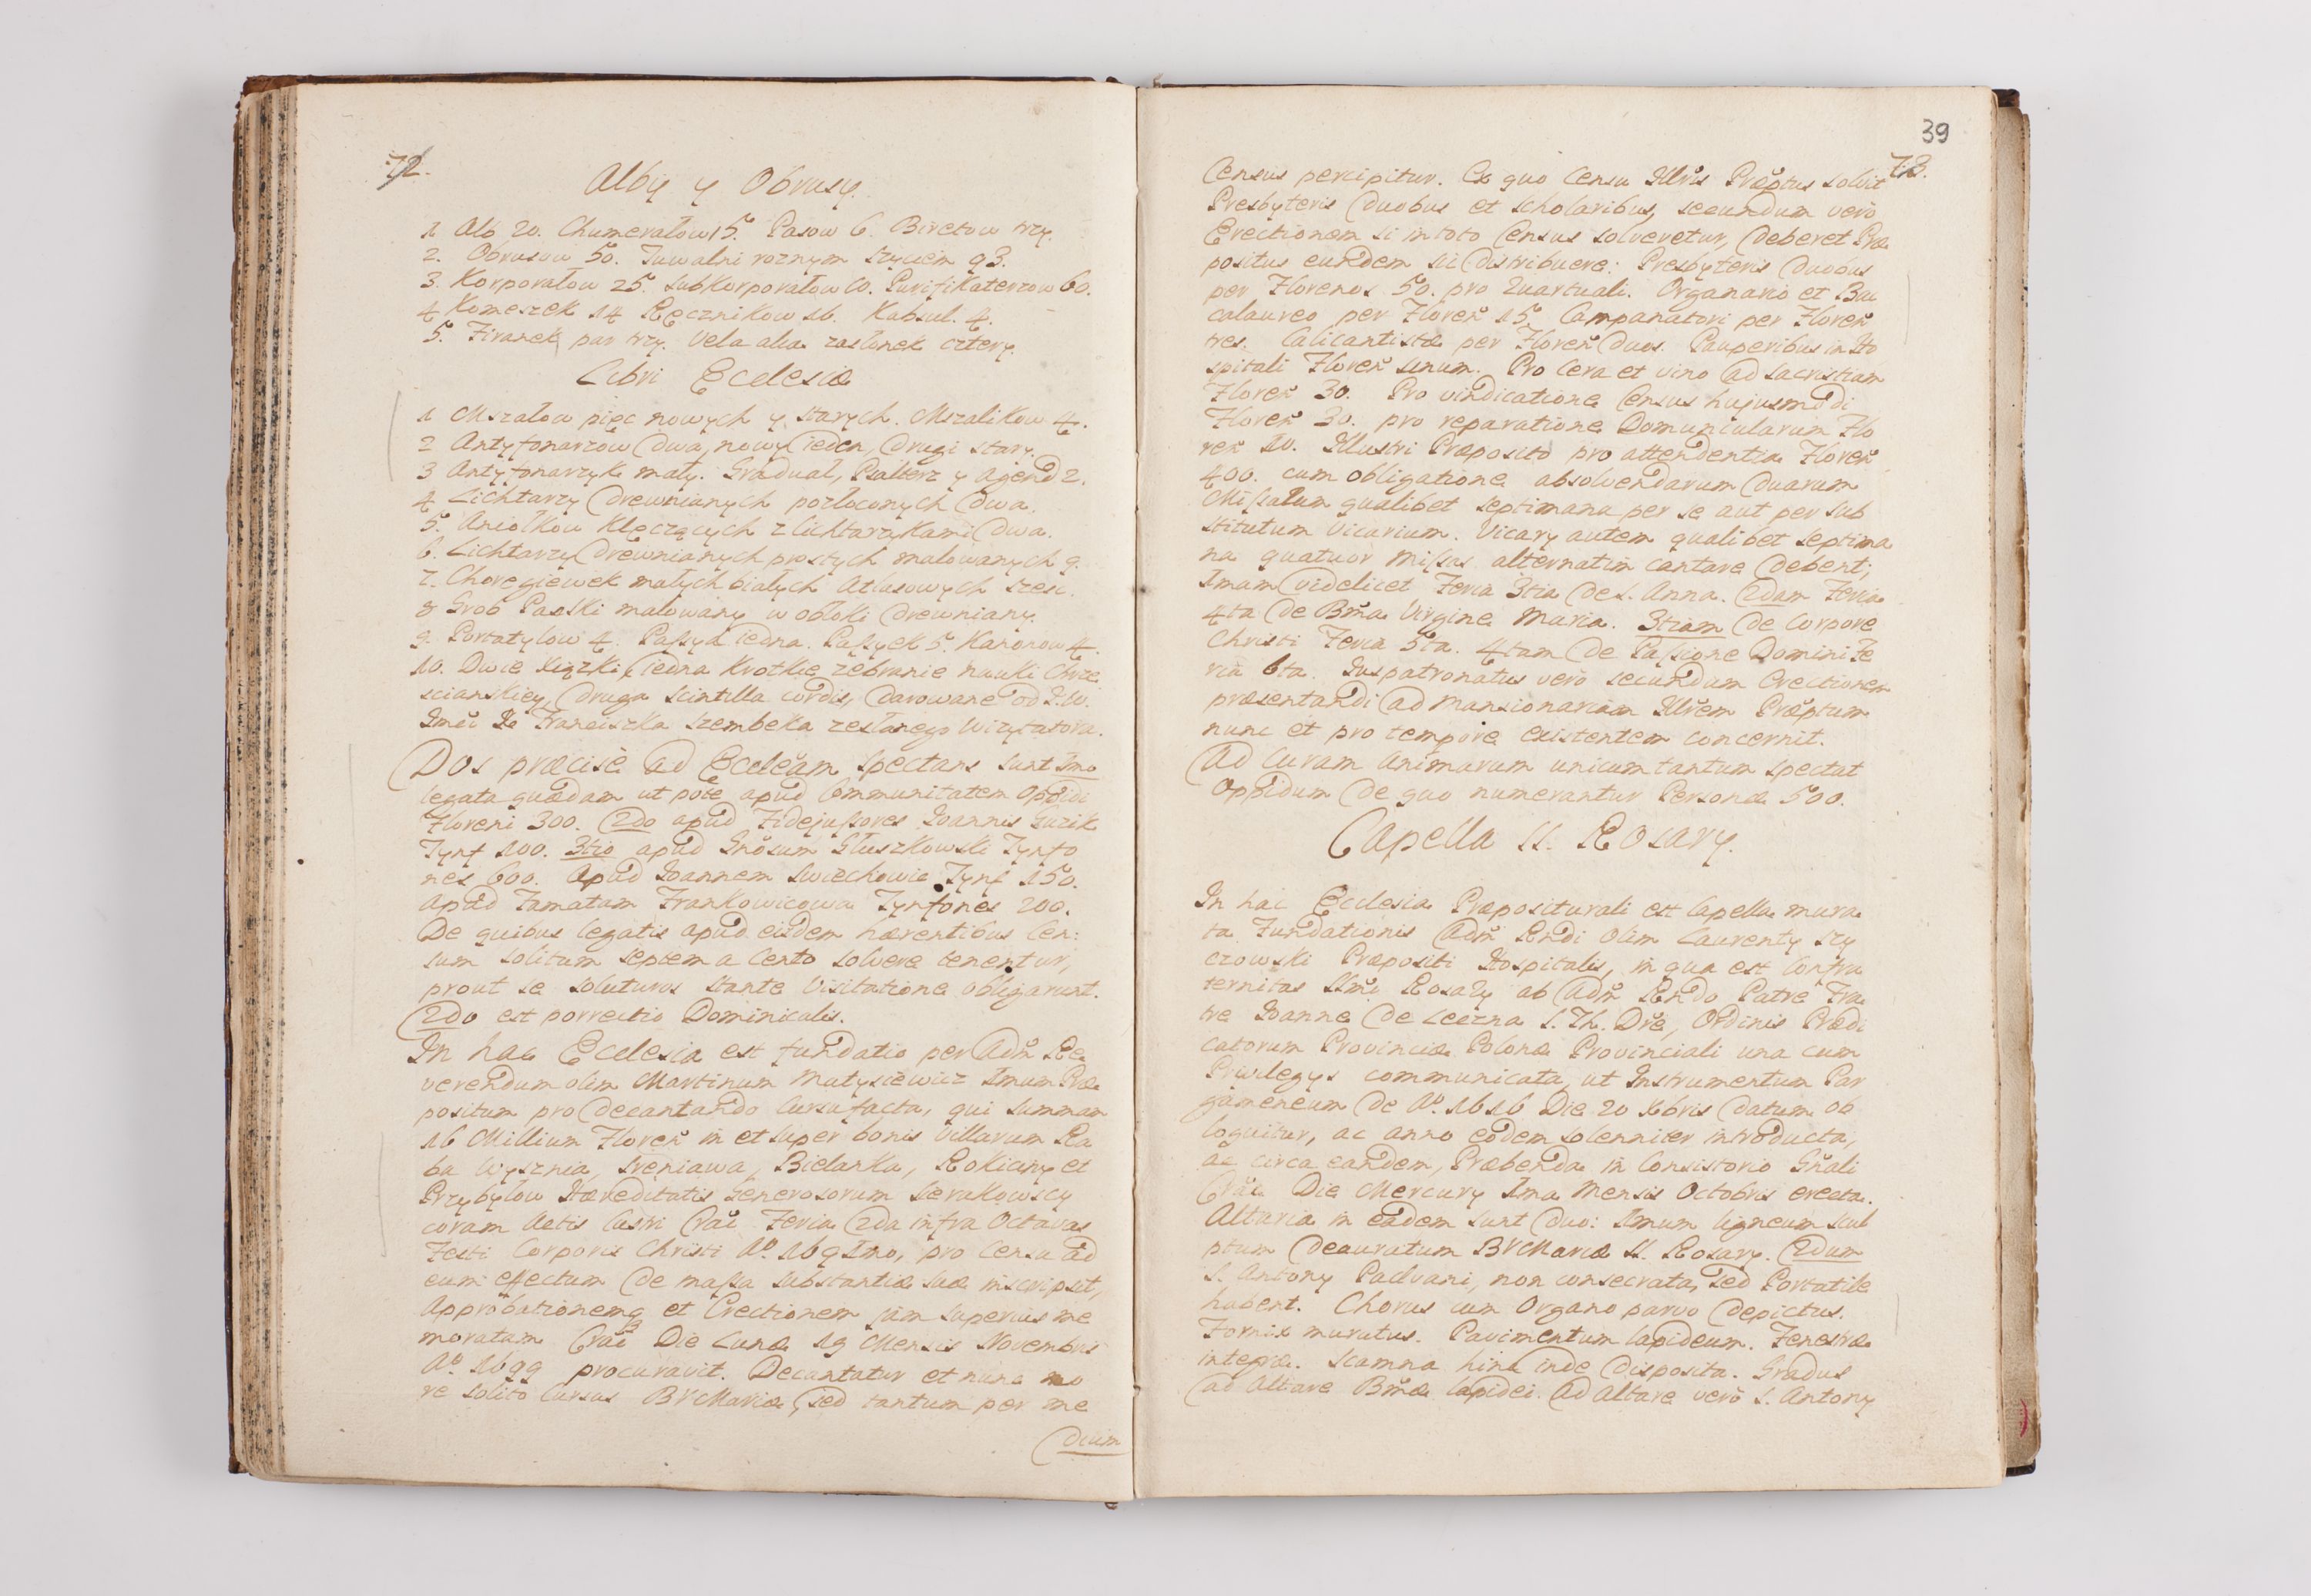 72.
Alby y Obrusy.
1 Alb 20. Chumerałow 15. Pasow 6. Biretow trzy.
2. Obrusow 50. Tuwalni roznym szyciem 93.
3. Korporałow 25. SubKorporałow 10. Purifikaterzow 60.
4 Komeszek 14 Ręcznikow 16. Kabsul. 4.
5. Firanek par trzy. Vela alias zasłonek cztery.
Libri Ecclesiæ
1 Mszałow pięc nowych y starych. Mszalikow 4.
2 Antyfonarzow dwa, nowy ieden, drugi stary.
3 Antyfonarzyk mały. Gradual, Psalterz y Agend 2.
4 Lichtarzy drewnianych pozłoconych dwa.
5. Aniołkow klęczących z lichtarzykami dwa.
6. Lichtarzy drewnianych prostych malowanych 9.
7. Choregiewek małych białych Atłasowych szesc.
8 Grob Pański malowany w obłoki drewniany.
9. Portatylow 4. Passya iedna. Passyek 5. Kanonow 4.
10. Dwie xiązki, iedna Krotkie zebranie nauki Chrze
scianskiey, druga scintilla cordis, darowane od I.W.
Imći Xa Franciszka Szembeka zesłanego Wizytatora.
Dos præcise ad Eccleãm spectans sunt Imo
legata quædam ut pote apud Communitatem Oppidi
Floreni 300. 2do apud Fidejussores Ioannis Guzik
Tynf 100. 3tio apud Gnõsum Głuszkowski Tynfo
nes 600. Apud Ioannem Swiechowic Tynf 150.
Apud Famatam Frankowicowa Tynfones 200.
De quibus legatis apud eisdem hærentibus Cen:
sum solitum septem a Cento solvere tenentur,
prout se soluturos stante Visitatione obligarunt.
2do est porrectio Dominicalis.
In hac Ecclesia est fundatio per Adm̃ Re
verendum olim Martinum Matysiewicz Imum Præ
positum pro decantando Cursu facta, qui summam
16 Millium Floreñ in et super bonis Villarum Ra
ba Wysznia, Sreniawa, Bielanka, Rokiciny et
Przybylow Hæreditatis Generosorum Sierakowscy
coram Actis Castri Crac̃ Feria 2da infra Octavas
Festi Corporis Christi Ao. 169Imo, pro Censu ad
eum effectum de massa substantiæ suæ inscripsit,
Approbationemq et Erectionem jam superius me
moratam Crac̃ Die Lunæ 19 Mensis Novembris
Ao. 1699 procuravit. Decantatur et nunc mo
re solito Cursus BVMariæ, sed tantum per me
dium
39
73.
Census percipitur. Ex quo Censu Illris Præptus solvit
Presbyteris duobus et scholaribus, secundum vero
Erectionem si in toto Census solveretur, deberet Præ
positus eundem sic distribuere: Presbyteris duobus
per Florenos 50. pro Quartuali. Organario et Bac
calaureo per Floreñ 15 Campanatori per Floreñ
tres. Calicantistæ per Floreñ duos. Pauperibus in Ho
spitali Floreñ unum. Pro Cera et vino ad Sacristiam
Floreñ 30. Pro vindicatione Census hujusmodi
Floreñ 30. pro reparatione Domuncularum Flo
reñ 10. Illustri Præposito pro attendentia Floreñ
400. cum obligatione absolvendarum duarum
Missarum qualibet septimana per se aut per sub
stitutum Vicarium. Vicary autem qualibet septima
na quatuor Missas alternatim cantare debent;
Imam videlicet Feria 3tia de S. Anna. 2dam Feria
4ta de Bm̃a Virgine Maria. 3tiam de Corpore
Christi Feria 5ta. 4tam de Passione Domini Fe
ria 6ta. Juspatronatus vero secundum Erectionem
præsentandi ad Mansionariam Illrem Præptum
nunc et pro tempore existentem concernit.
Ad Curam Animarum unicum tantum spectat
Oppidum de quo numerantur Personæ 500.
Capella SS. Rosary.
In hac Ecclesia Præpositurali est Capella mura
ta Fundationis Adm̃ Rndi olim Laurenty Szy
czowski Præpositi Hospitalis, in qua est Confra
ternitas SSmi Rosary ab Adm̃ Rndo Patre Fra
tre Ioanne de S. Th. Dre, Ordinis Prædi
catorum Provinciæ Polonæ Provinciali una cum
Privilegys communicata, ut Instrumentum Par
gameneum de Ao. 1616 Die 20 Xbris datum ob
loquitur, ac anno eodem solenniter introducta,
ac circa eandem, Præbenda in Consistorio Gñali
Crac̃ Die Mercury Ima Mensis Octobris erecta.
Altaria in eadem sunt duo: Imum ligneum scul
ptum deauratum BVMariæ SS. Rosary. 2dum
S. Antony Paduani, non consecrata, sed Portatile
habent. Chorus cum Organo parvo depictus.
Fornix muratus. Pavimentum lapideum. Fenestræ
integræ. Scamna hinc inde disposita. Gradus
ad Altare Bm̃æ lapidei. Ad Altare vero S. Antony